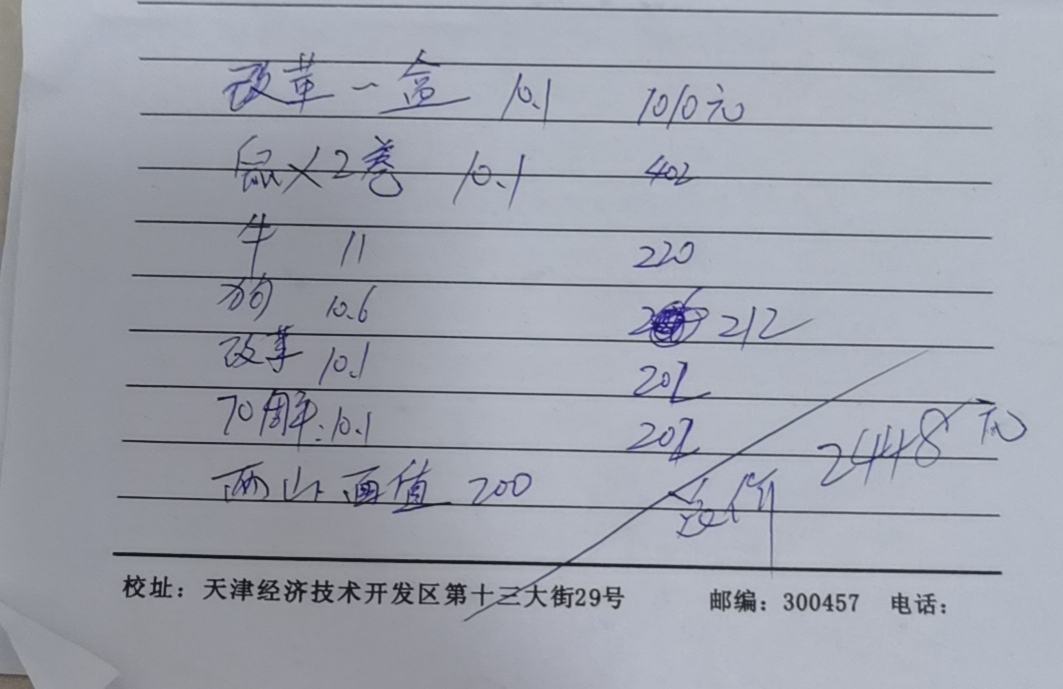 改革一盒 10.1 1010元
鼠×2卷 10.1 402
牛 11 220
狗 10.6 212
改革 10.1 202
70周年:10.1 202
两山面值 200
总价 2448元
校址：天津经济技术开发区第十三大街29号 邮编：300457 电话：